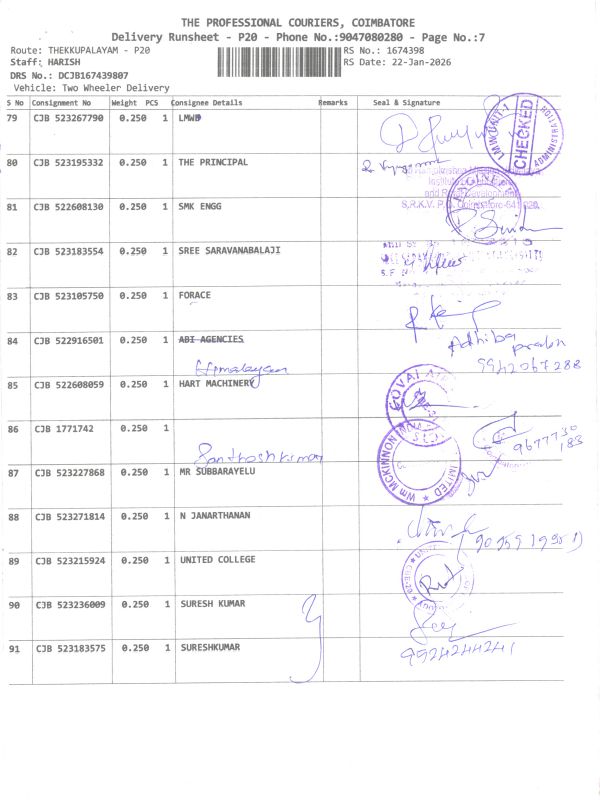 THE PROFESSIONAL COURIERS, COIMBATORE
Delivery Runsheet - P20 - Phone No.:9047080280 - Page No.:7
Route: THEKKUPALAYAM - P20 RS No.: 1674398
Staff: HARISH RS Date: 22-Jan-2026
DRS No.: DCJB167439807
Vehicle: Two Wheeler Delivery
S No Consignment No Weight PCS Consignee Details Remarks Seal & Signature
79 CJB 523267790 0.250 1 LMW
LMW UNIT-1 CHECKED ADMINISTRATION
80 CJB 523195332 0.250 1 THE PRINCIPAL
and Rural Development
S.R.K.V. P.O. Coimbatore-641 020.
81 CJB 522608130 0.250 1 SMK ENGG
82 CJB 523183554 0.250 1 SREE SARAVANABALAJI
83 CJB 523105750 0.250 1 FORACE
84 CJB 522916501 0.250 1 ABI AGENCIES
Himalayan
Adhiba
9942067288
85 CJB 522608059 0.250 1 HART MACHINERY
86 CJB 1771742 0.250 1
Santhoshkumar
9677730
183
WM MCKINNON LIMITED
87 CJB 523227868 0.250 1 MR SUBBARAYELU
88 CJB 523271814 0.250 1 N JANARTHANAN
89 CJB 523215924 0.250 1 UNITED COLLEGE
90 CJB 523236009 0.250 1 SURESH KUMAR
91 CJB 523183575 0.250 1 SURESHKUMAR
9924244241